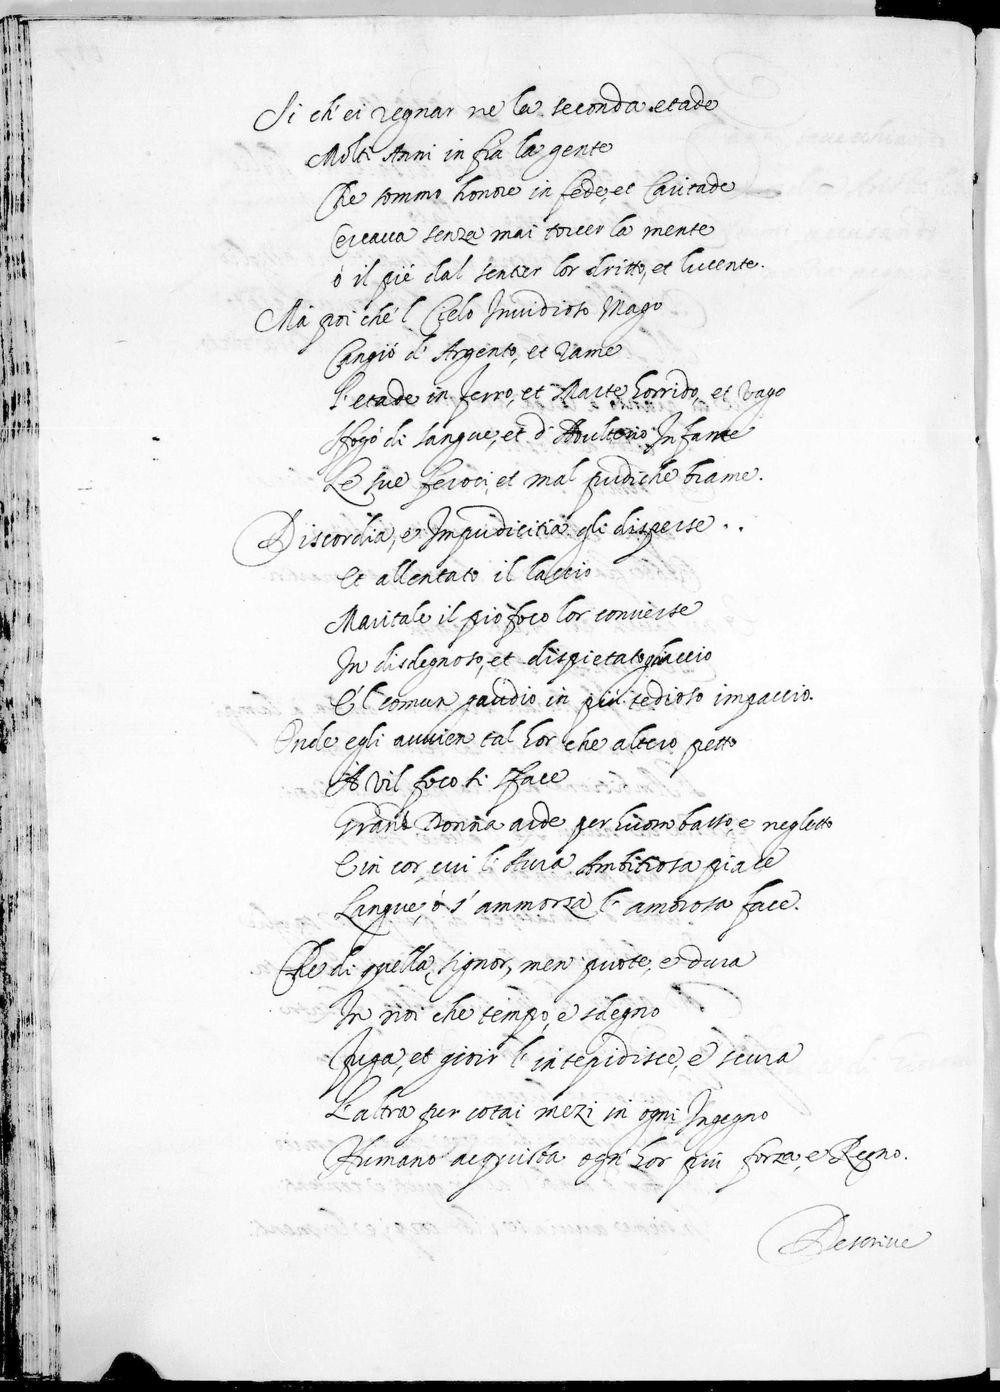 Si ch'ei regnar ne la seconda etade
Molti Anni in frà la gente
Che sommo honore in fede, et Caritade
Cercava senza mai torcer la mente
ò il piè dal sentier lor dritto, et lucente.
Mà poi che'l Cielo Invidioso Mago
Cangiò d'Argento, et rame
L'etade in ferro, et Marte horrido, et vago
Sfogò di sangue, et d'Adulterio Infame
Le sue feroci, et mal pudiche brame.
Discordia, e Impudicitia gli disperse
Et allentato il laccio
Maritale il pio foco lor converse
In disdegnoso, et dispietato ghiaccio
E'l comun gaudio in più tedioso impaccio.
Onde egli avvien tal hor che altero petto
A vil foco si sface
Grand Donna arde per huom basso, e negletto
E in cor, cui l'Aura Ambitiosa piace
Langue, ò s'ammorza l'amorosa face.
Che di quella, signor, men puote, e dura
In noi che tempo, e sdegno
Fuga, et gioir l'intepidisce, e scura
L'altra per cotai mezi in ogni Ingegno
Humano acquista ogn'hor più forza, e Regno.
Descrive